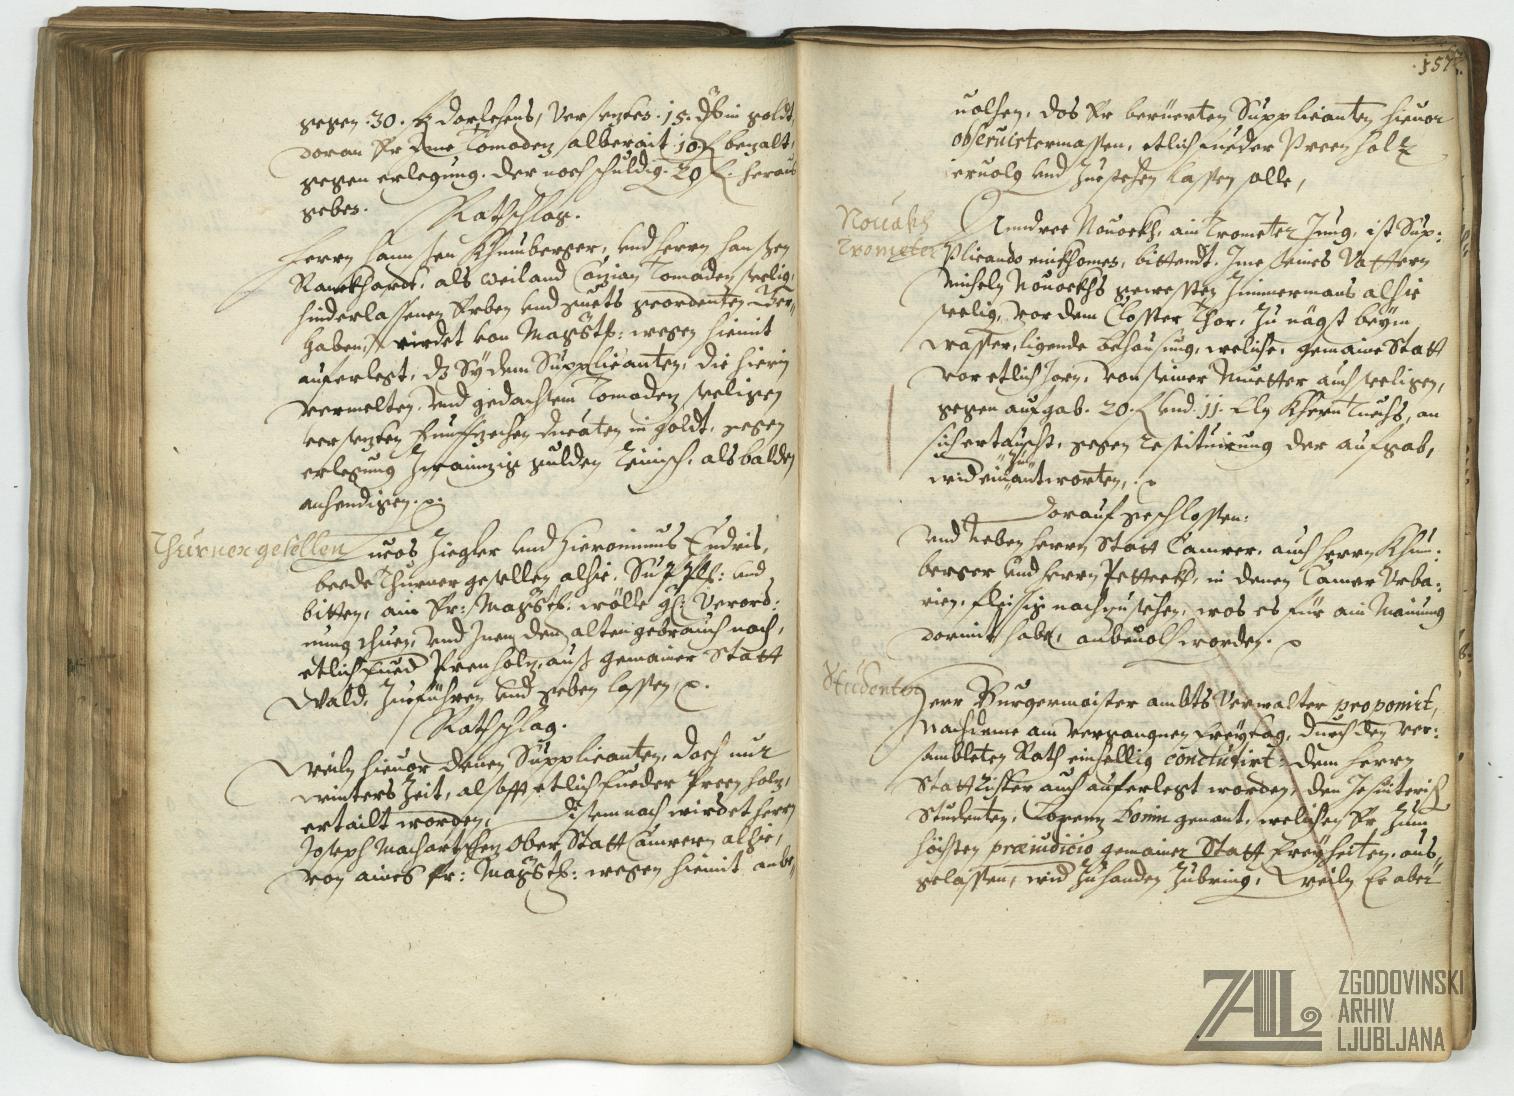 gegen .30. fl darlehens, Versezten .15. dugg in goldt,
daran Er dem Tomadez alberait 10 fl bezalt,
gegen erlegung. der noch schuldig. 20 fl. heraus
geben.
Rathschlag.
Herrn Hannsen Khunberger, und Herrn Hannsen
als weiland Tomaden seelig,
hinderlassenen Erben und guets geordenten Ger-
haben, wirdet von Magistl: wegen hiemit
auferlegt, dz Sÿ dem Supplicanten, die hierin
vermelten und gedachtem Tomaden seeligen
versezten Funffzechen ducaten in goldt, gegen
erlegung zwainzig gulden Reinisch, alsbalden
anhendigen.
Thurnergesellen
Lucas Ziegler und Hieronimus Endris,
beede Thurnergesellen alhie, Supplb: und
bitten, ain Er: Magistl: wölle gl: Verord-
nung thuen, und Inen dem alten gebrauch nach,
etlich Fued Prenholz, auß gemainer Statt
Wald, Zueführen und geben lassen,
Rathschlag
Weiln hievor denen Supplicanten, doch nur
winters Zeit, alsofft etlich Fueder Preenholz,
ertailt worden, Disemnach wirdet herrn
Joseph Machartschen Ober Statt Camrern alhie,
von aines Er: Magistl: wegen hiemit anbe-
157.
uolhen, das Er berüerten Supplicanten hieuor
obseruirtermassen, etlich Fueder Preenholz
eruolg und Zuestehen lassen solle,
Nouakh
Trometer
Anndree Nouockh, ain Trometer Jung, ist Sup:
plicando einkhomen, bittendt, Ime seines Vattern
Micheln Nouockhs gewesten Zimmermans alhie
seelig, vor dem Closster Thor, Zu nägst beÿm
wasser, ligende behausung, weliche, gemaine Statt
vor etlich Jarn, von seiner Muetter auch seeligen,
gegen aufgab. 20. fl und .11. Eln Khern Tuechs, an
sich ertauscht, gegen restituirung der aufgab,
widein Zu antworten,
Darauf geschlossen:
Und neben herrn Statt Camrer, auch herrn Khün-
berger und herrn Petteekh, in denen Camer Urba-
rien, fleissig nachzusehen, was es für ain Mainung
darmit habe, anbeuolh worden.
Studenten
Herr Burgermaister ambts Verwalter proponirt,
Nachdeme am vergangnen Freÿtag, durch den ver-
sambleten Rath einhellig concludirt, dem herrn
Stattrichter auch auferlegt worden, den Jesuiterisch
Studenten, Lorenz genant, welichen Er zum
höchsten præiudicio gemainer Statt Freÿheiten, aus-
gelassen, wid zuhanden zubring, Weiln Er aber
ZAL ZGODOVINSKI
ARHIV
LJUBLJANA